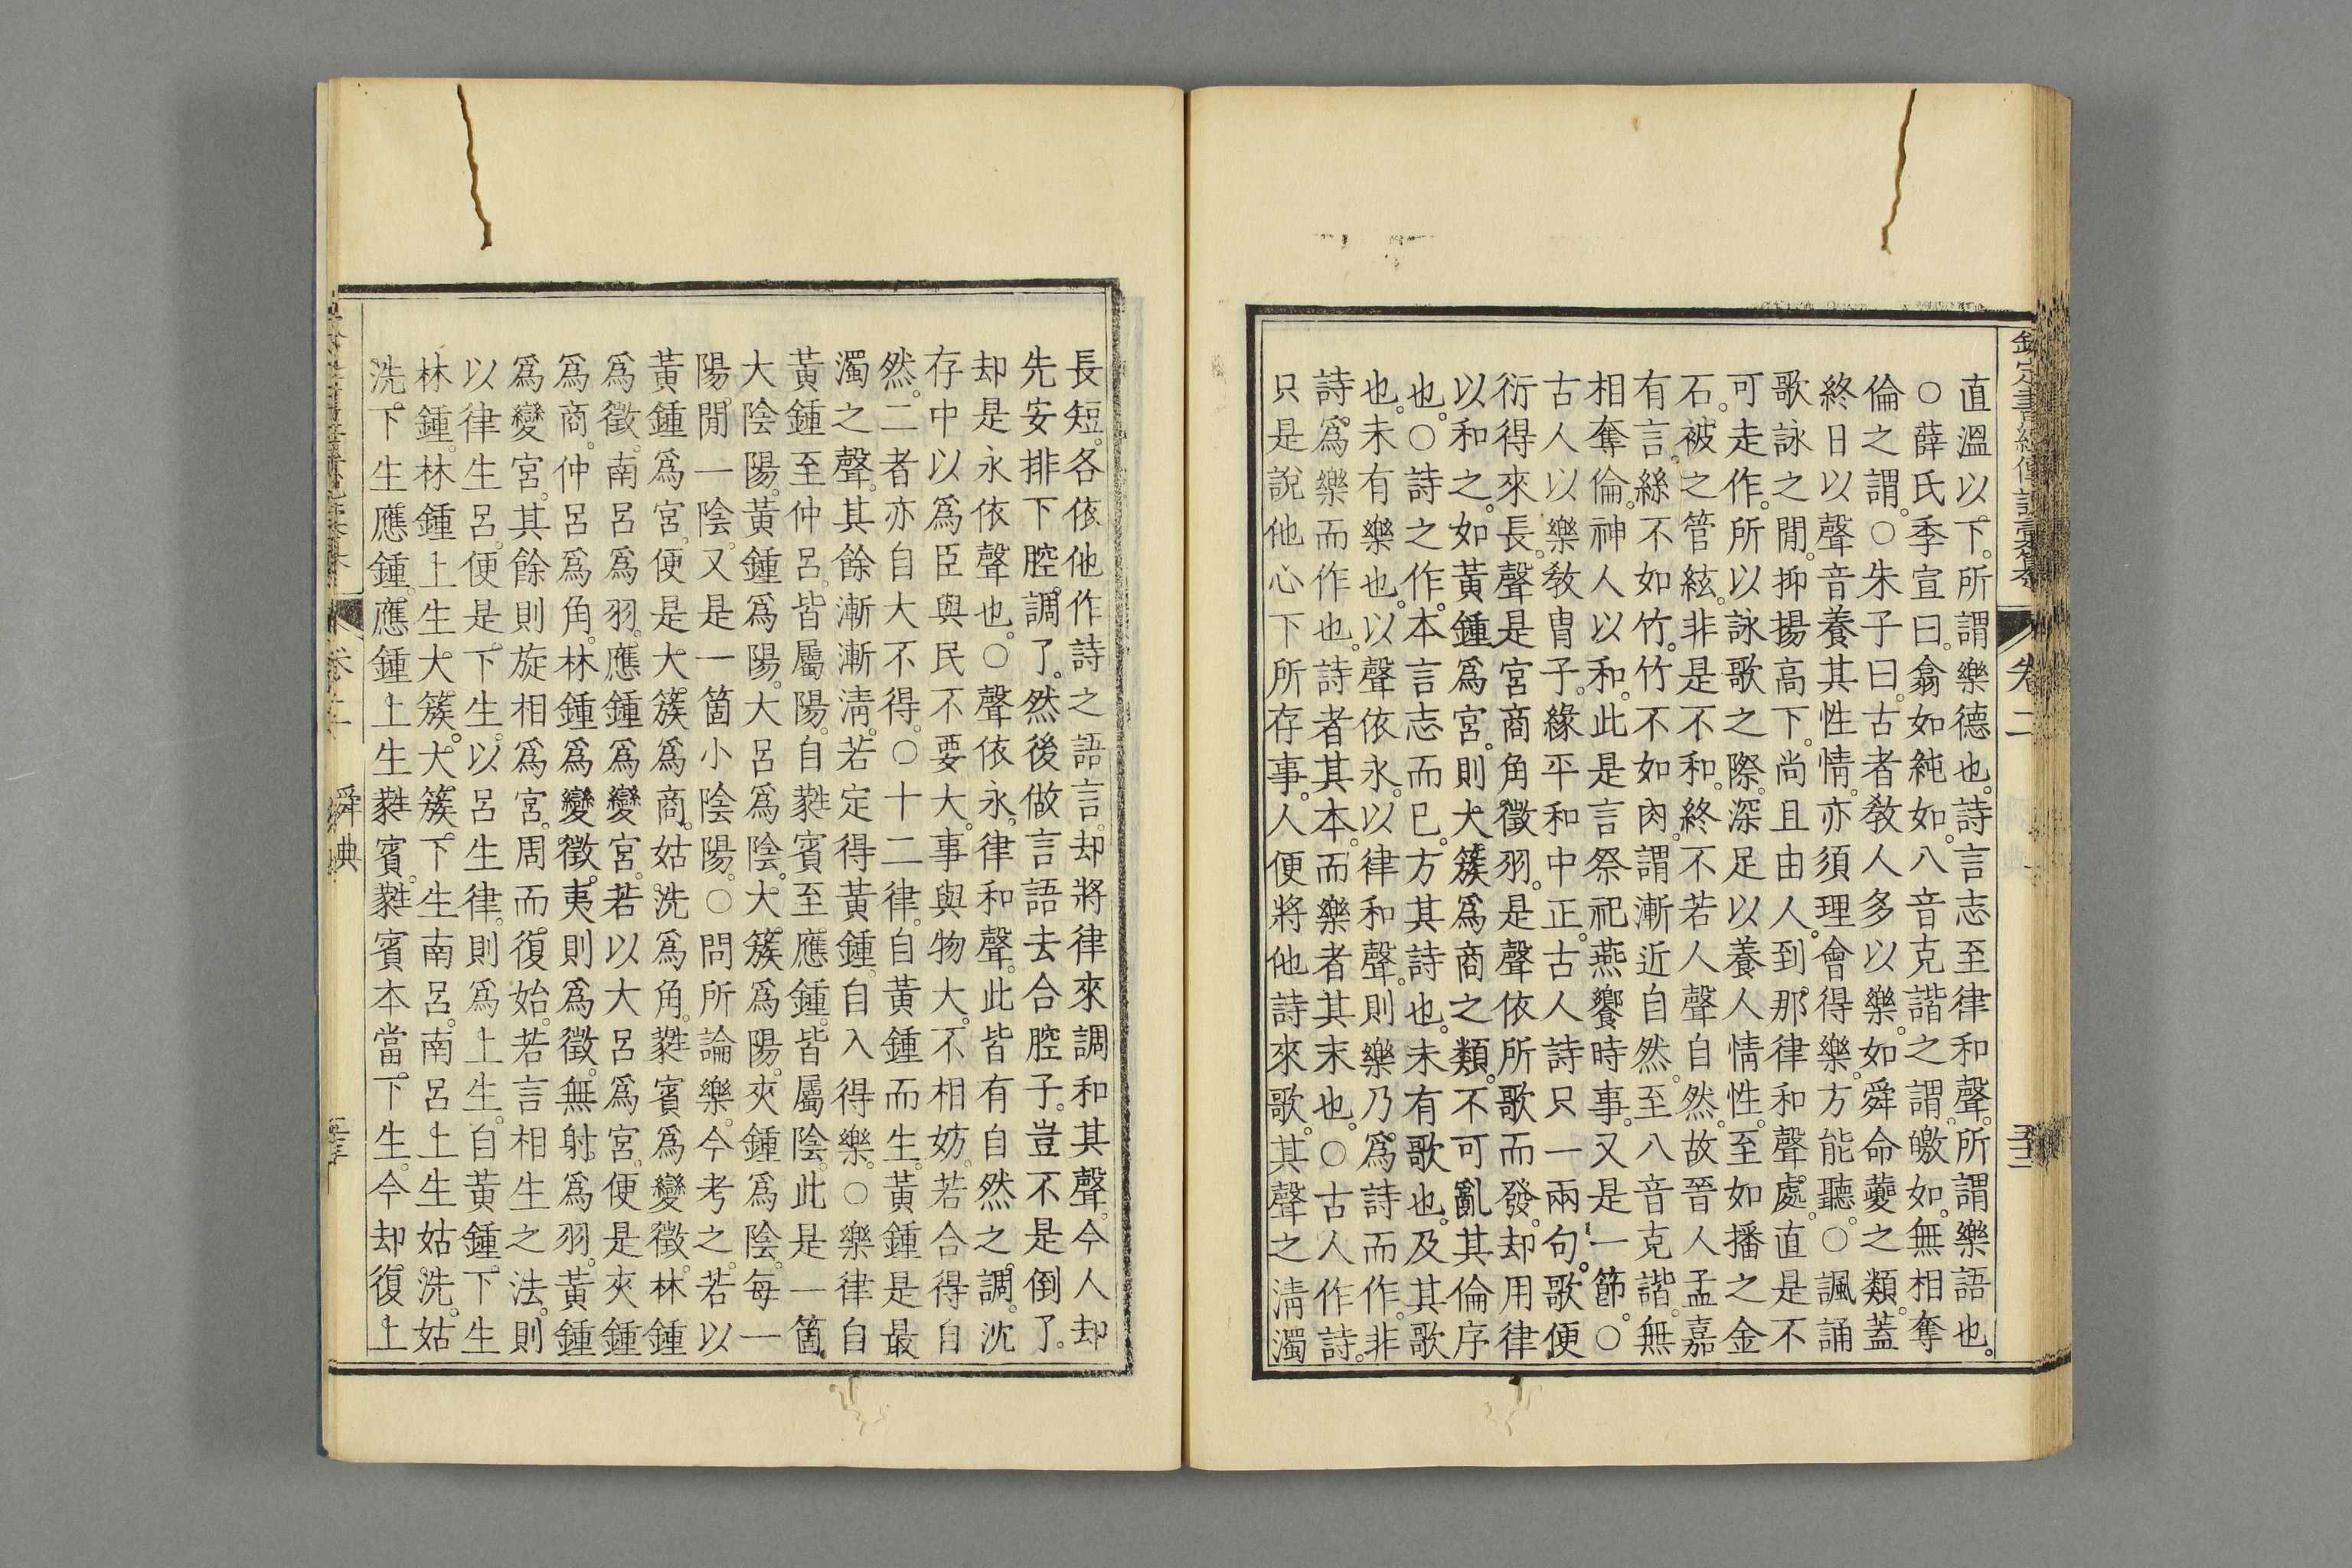 直溫以下。所謂樂德也。詩言志至律和聲。所謂樂語也。
○薛氏季宣曰。翕如純如。八音克諧之謂。皦如。無相奪
倫之謂。○朱子曰。古者敎人多以樂。如舜命夔之類。蓋
終日以聲音養其性情。亦須理會得樂。方能聽。○諷誦
歌詠之閒。抑揚高下。尚且由人。到那律和聲處。直是不
可走作。所以詠歌之際。深足以養人情性。至如播之金
石。被之管絃。非是不和。終不若人聲自然。故晉人孟嘉
有言。絲不如竹。竹不如肉。謂漸近自然。至八音克諧。無
相奪倫。神人以和。此是言祭祀燕饗時事。又是一節。○
古人以樂敎胄子。緣平和中正。古人詩只一兩句。歌便
衍得來長。聲是宮商角徵羽。是聲依所歌而發。却用律
以和之。如黃鍾爲宮。則大簇爲商之類。不可亂其倫序
也。○詩之作。本言志而已。方其詩也。未有歌也。及其歌
也。未有樂也。以聲依永。以律和聲。則樂乃爲詩而作。非
詩爲樂而作也。詩者其本。而樂者其末也。○古人作詩。
只是說他心下所存事。人便將他詩來歌。其聲之淸濁
卷二
長短。各依他作詩之語言。却將律來調和其聲。今人却
先安排下腔調了。然後做言語去合腔子。豈不是倒了。
却是永依聲也。○聲依永。律和聲。此皆有自然之調。沈
存中以爲臣與民不要大。事與物大。不相妨。若合得自
然。二者亦自大不得。○十二律。自黃鍾而生。黃鍾是最
濁之聲。其餘漸漸淸。若定得黃鍾。自入得樂。○樂律自
黃鍾至仲呂。皆屬陽。自蕤賓至應鍾。皆屬陰。此是一箇
大陰陽。黃鍾爲陽。大呂爲陰。大簇爲陽。夾鍾爲陰。每一
陽。閒一陰。又是一箇小陰陽。○問所論樂。今考之。若以
黃鍾爲宮。便是大簇爲商。姑洗爲角。蕤賓爲變徵。林鍾
爲徵。南呂爲羽。應鍾爲變宮。若以大呂爲宮。便是夾鍾
爲商。仲呂爲角。林鍾爲變徵。夷則爲徵。無射爲羽。黃鍾
爲變宮。其餘則旋相爲宮。周而復始。若言相生之法。則
以律生呂。便是下生。以呂生律。則爲上生。自黃鍾。下生
林鍾。林鍾上生大簇。大簇。下生南呂。南呂上生姑洗。姑
洗。下生應鍾。應鍾上生蕤賓。蕤賓本當。下生。今却。復上
舜典